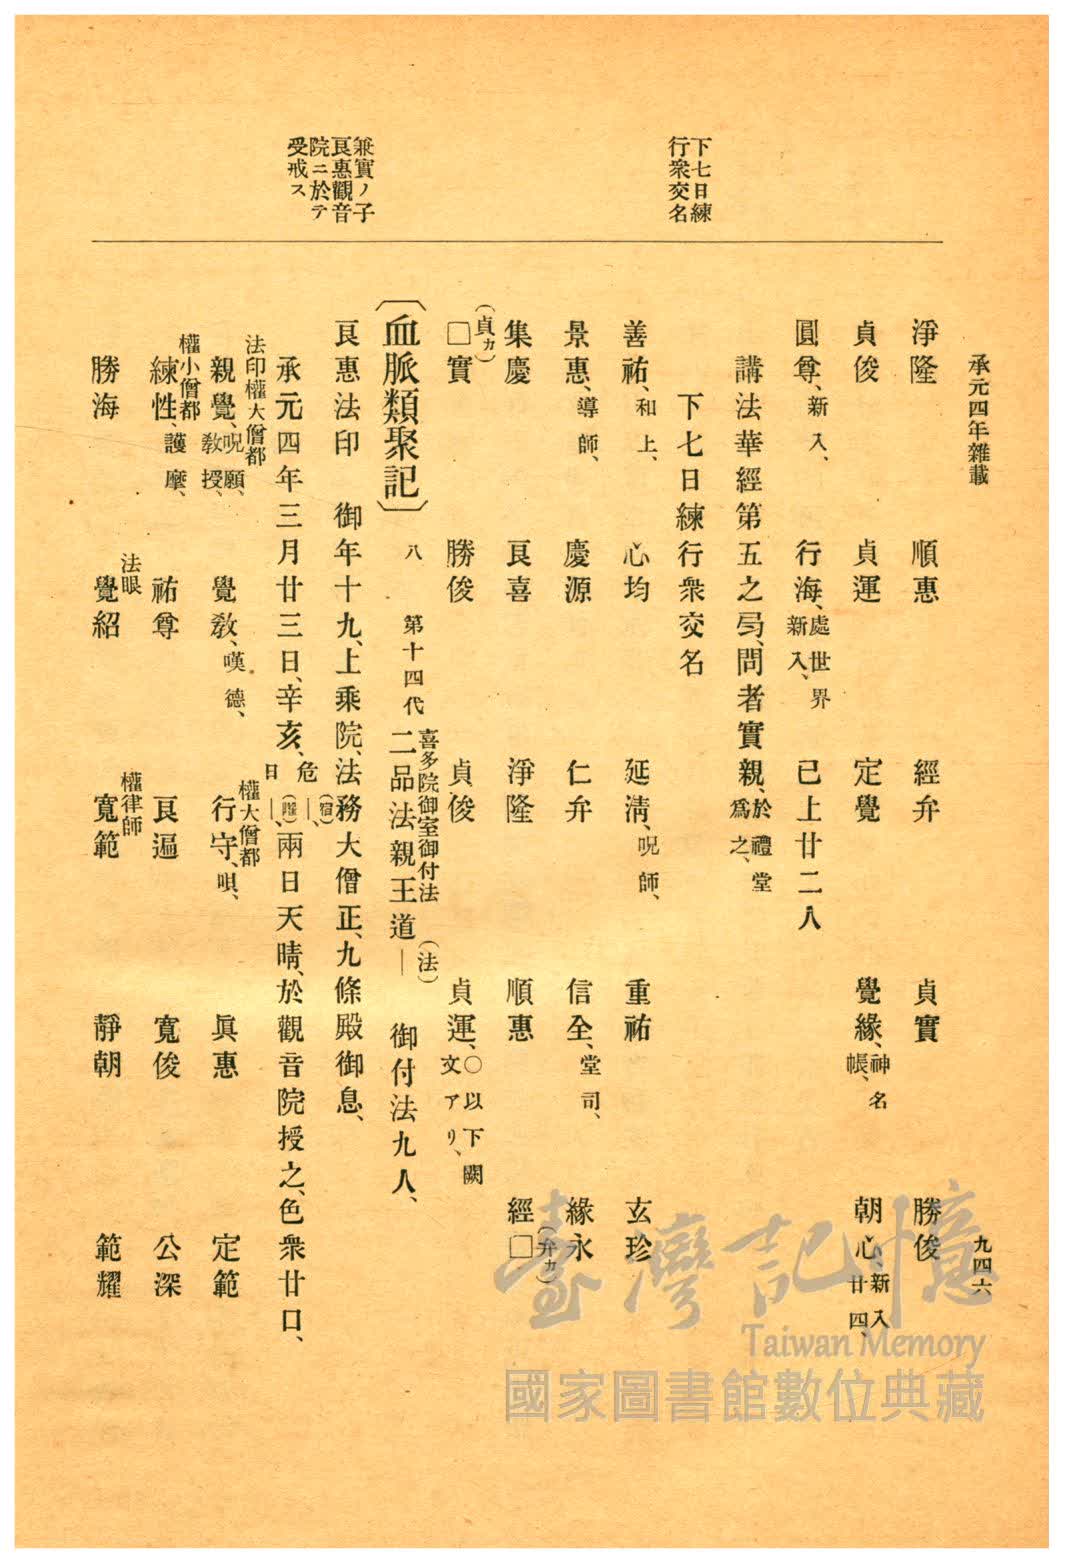 承元四年雜載
九四六
下七日練
行衆交名
兼實ノ子
良惠觀音
院ニ於テ
受戒ス
淨隆 順惠 經弁 貞實 勝俊
貞俊 貞運 定覺 覺緣、神名帳、 朝心、新入廿四、
圓尊、新入、 行海、處世界新入、 已上廿二人
講法華經第五之号、問者實親、於禮堂爲之、
下七日練行衆交名
善祐、和上、 心均 延淸、呪師、 重祐 玄珍
景惠、導師、 慶源 仁弁 信全、堂司、 緣永
集慶 良喜 淨隆 順惠 經□(弁カ)
(貞カ)□實 勝俊 貞俊 貞運、○以下闕文アリ、
〔血脈類聚記〕 八 第十四代 喜多院御室御付法 二品法親王道―(法) 御付法九人、
良惠法印 御年十九、上乘院、法務大僧正、九條殿御息、
承元四年三月廿三日、辛亥、危―(宿)、日―(曜)、兩日天晴、於觀音院授之、色衆廿口、
法印權大僧都 親覺、呪願、敎授、 覺敎、嘆德、 權大僧都 行守、唄、 眞惠 定範
權小僧都 練性、護摩、 祐尊 良遍 寬俊 公深
勝海 法眼 覺紹 權律師 寬範 靜朝 範耀
臺灣記憶
Taiwan Memory
國家圖書館數位典藏